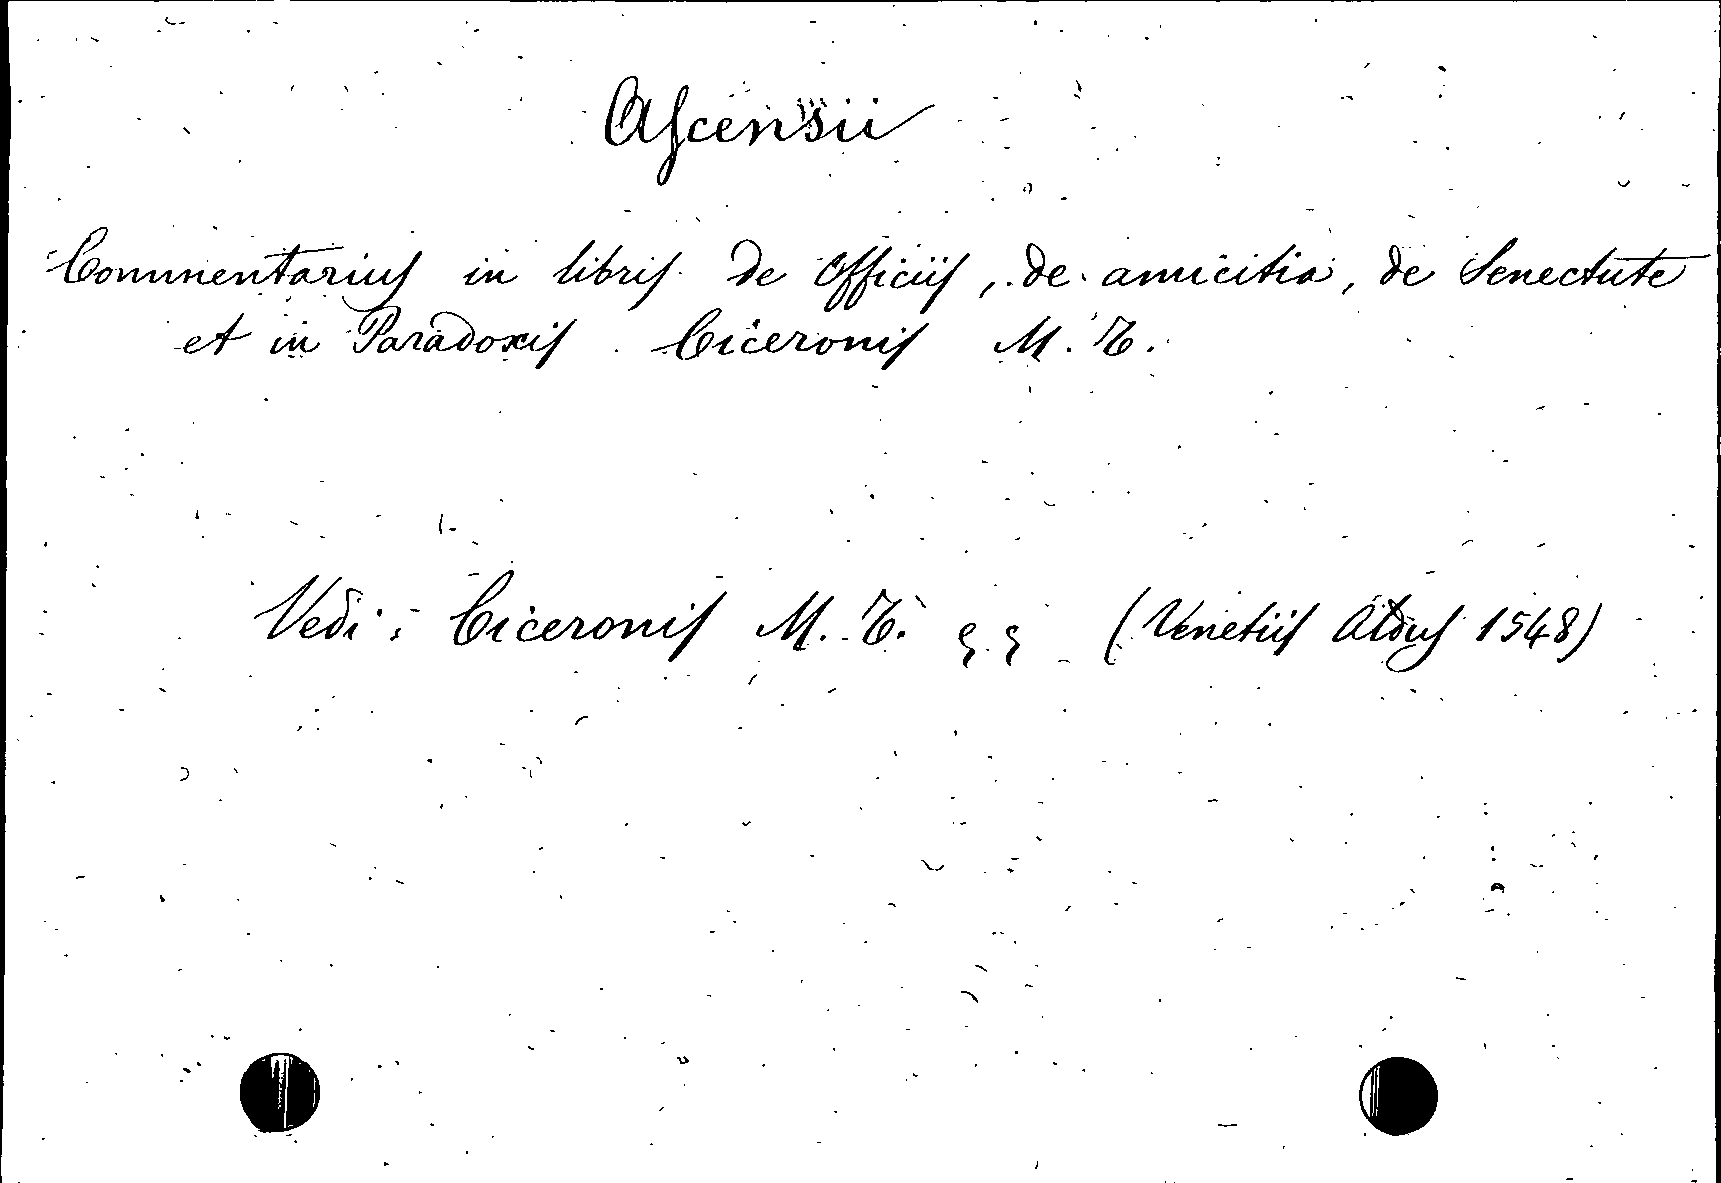 Ascensii
Commentarius in libris de Officiis, de amicitia, de Senectute
et in Paradoxis Ciceronis M. T.
Vedi: Ciceronis M. T. (Venetiis Aldus 1548)